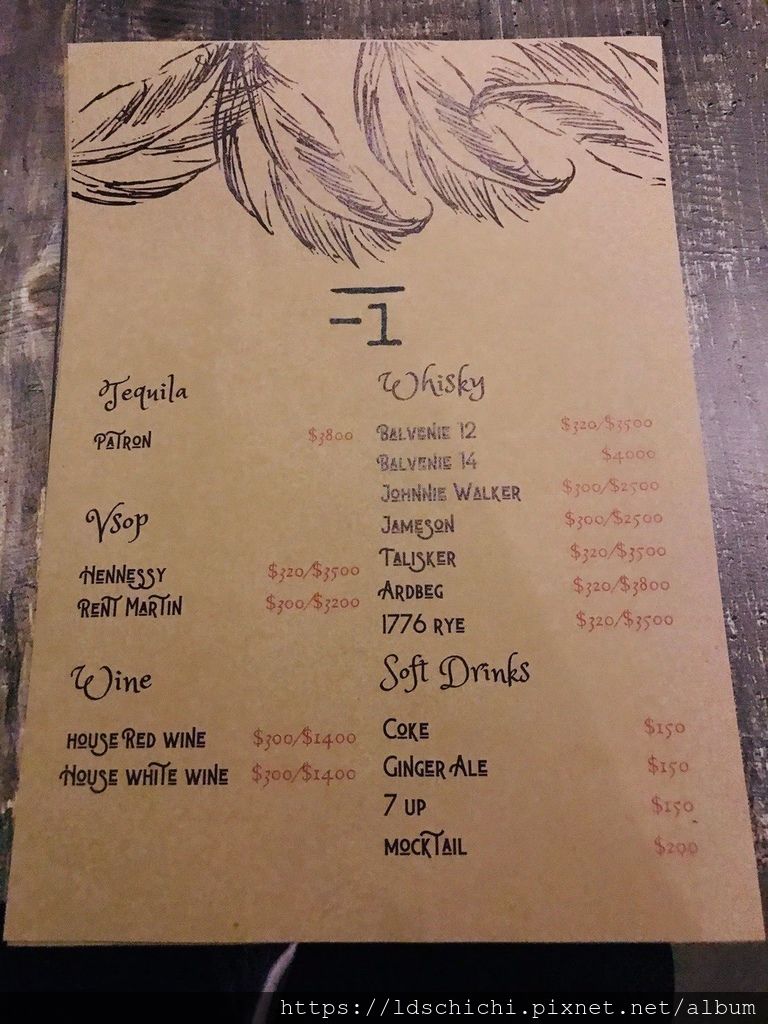 -1
Tequila
PATRON $3800
Vsop
HENNESSY $320/$3500
RENT MARTIN $300/$3200
Wine
HOUSE RED WINE $300/$1400
HOUSE WHITE WINE $300/$1400
Whisky
BALVENIE 12 $320/$3500
BALVENIE 14 $4000
JOHNNIE WALKER $300/$2500
JAMESON $300/$2500
TALISKER $320/$3500
ARDBEG $320/$3800
1776 RYE $320/$3500
Soft Drinks
COKE $150
GINGER ALE $150
7 UP $150
MOCKTAIL $200
https://ldschichi.pixnet.net/album